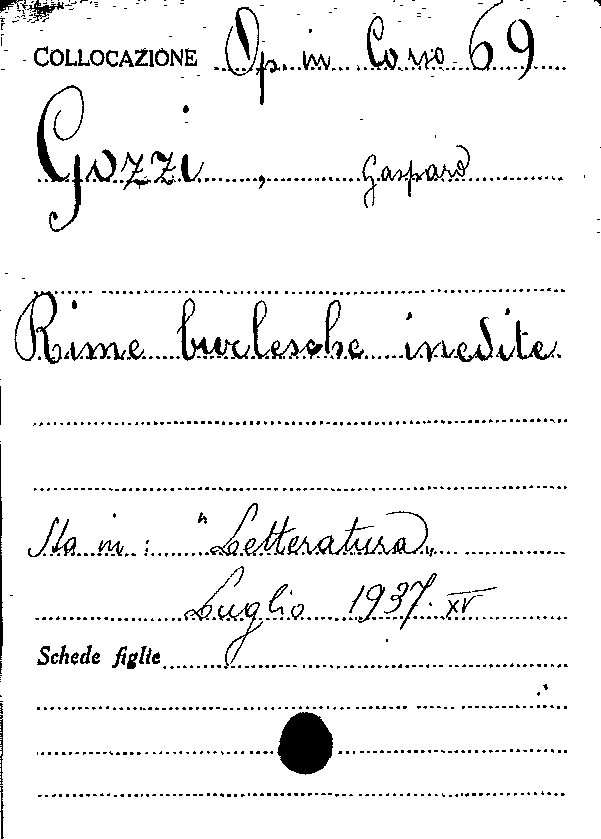 COLLOCAZIONE Op. in Corso 69
Gozzi, Gasparo
Rime burlesche inedite
Sta in: "Letteratura„
Luglio 1937. XV
Schede figlie